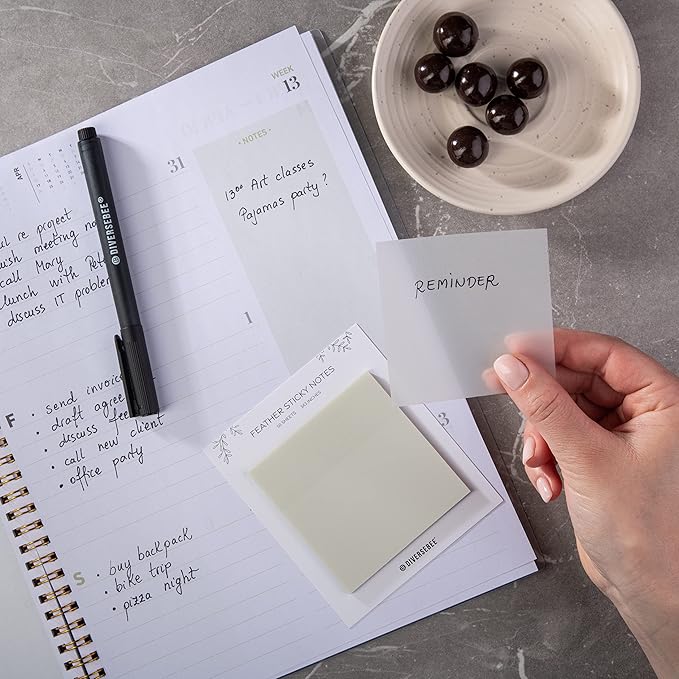 WEEK
13
APR
31
• NOTES •
13⁰⁰ Art classes
Pajamas party?
re project
meeting
call Mary
lunch with
discuss IT problem
1
REMINDER
@DIVERSEBEE®
F
• send invoice
• draft
• discuss
• call new client
• office party
FEATHER STICKY NOTES
3
@DIVERSEBEE®
S
• buy backpack
• bike trip
• pizza night